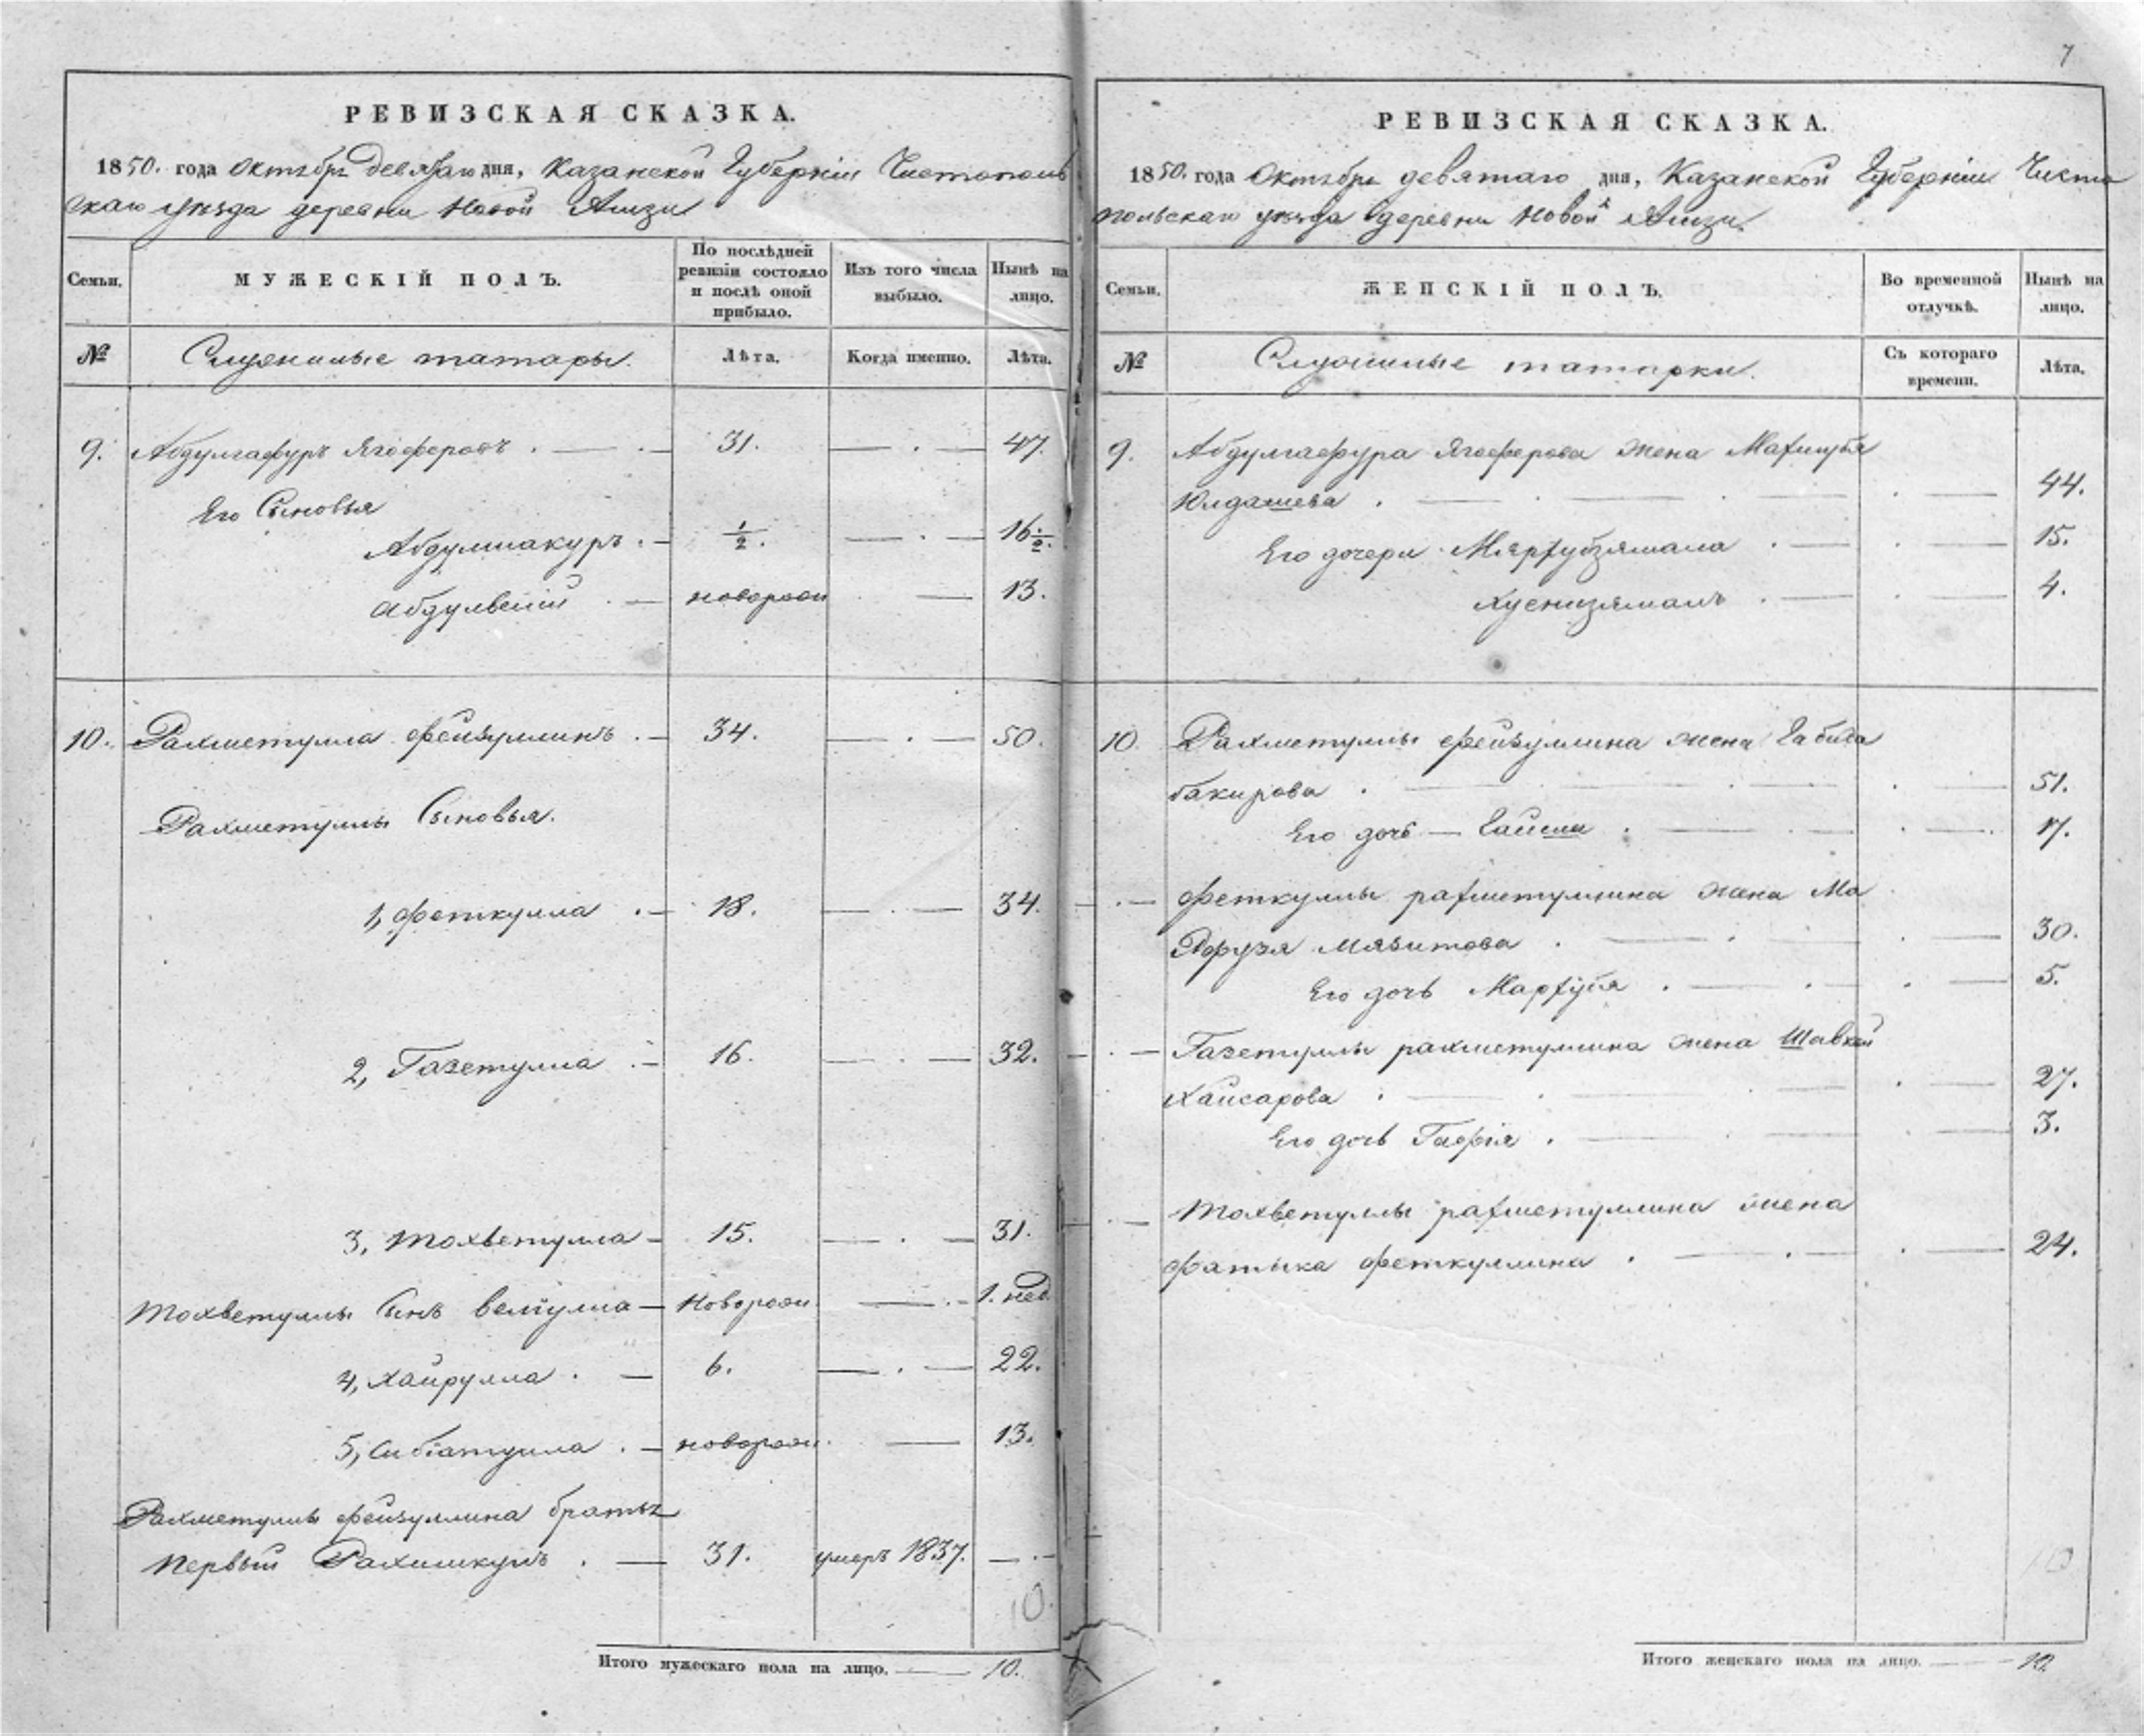 7
РЕВИЗСКАЯ СКАЗКА.
1850. года Октября девятаго дня, Казанской Губерніи Чистополь
скаго уѣзда деревни Новой Амзи
Семьи. МУЖЕСКІЙ ПОЛЪ. По послѣдней ревизіи состояло и послѣ оной прибыло. Изъ того числа выбыло. Нынѣ на лицо.
№ Служилые татары. Лѣта. Когда именно. Лѣта.
9. Абдулгафуръ Ягоферовъ 31. 47.
Его Сыновья
Абдулшакуръ 1/2. 16 1/2.
Абдулвелій новорож 13.
10. Рахметулла Фейзуллинъ 34. 50.
Рахметуллы Сыновья.
1, Феткулла 18. 34.
2, Газетулла 16. 32.
3, Мохветулла 15. 31.
Мохветуллы Сынъ Велиулла Новорож 1. нед
4, Хайрулла 6. 22.
5, Сибгатулла новорож. 13.
Рахметуллы Фейзуллина братья
Первый Рахимкулъ 31. умеръ 1837.
10.
Итого мужескаго пола на лицо. 10.
РЕВИЗСКАЯ СКАЗКА.
1850. года Октября девятаго дня, Казанской Губерніи Чисто
польскаго уѣзда деревни Новой Амзи.
Семьи. ЖЕНСКІЙ ПОЛЪ. Во временной отлучкѣ. Нынѣ на лицо.
№ Служилые татарки. Съ котораго времени. Лѣта.
9. Абдулгафура Ягоферова жена Махиубя
Юлдашева 44.
Его дочери Мярхубзямала 15.
Хуснизямалъ 4.
10. Рахметуллы Фейзуллина жена Габида
бакирова 51.
Его дочь Гайша 17.
Феткуллы рахметуллина жена Ма
Фруза Мязитова 30.
Его дочь Мархубя 5.
Газетуллы рахметуллина жена
Хайсарова 27.
Его дочь Гафія 3.
Мохветуллы рахметуллина жена
Фатыха Феткуллина 24.
10
Итого женскаго пола на лицо. 10.